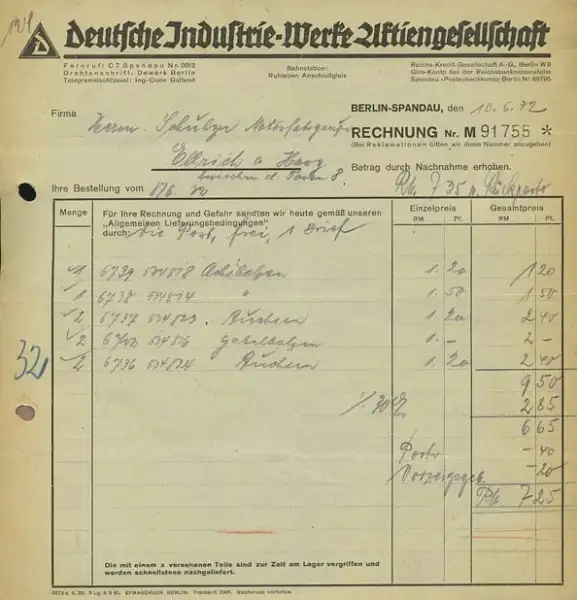 Deutsche Industrie-Werke Aktiengesellschaft
Fernruf: C 7 Spandau Nr. 0012
Drahtanschrift: Dewerk Berlin
Telegrammschlüssel: Ing.-Code Galland
Bahnstation:
Ruhleben Anschlußgleis
Reichs-Kredit-Gesellschaft A.-G., Berlin W 8
Giro-Konto bei der Reichsbanknebenstelle
Spandau · Postscheckkonto (Berlin Nr. 69795
Firma
BERLIN-SPANDAU, den 10.6.32
Herrn. Schulze
RECHNUNG Nr. M 91755 *
(Bei Reklamationen bitten wir diese Nummer anzugeben)
Ellrich a Harz
Betrag durch Nachnahme erhoben.
Ihre Bestellung vom 8/6. 32
Rm 7 35
Menge
Für Ihre Rechnung und Gefahr sandten wir heute gemäß unseren
„Allgemeinen Lieferungsbedingungen"
durch: die Post, frei, 1 Brief
Einzelpreis
RM Pf.
Gesamtpreis
RM Pf.
1 6739 534818 1.20 1 20
1 6738 " 1.50 1 50
2 6737 534823 Buchsen 1.20 2 40
2 1.- 2 -
2 6736 534824 Buchsen 1.20 2 40
32
9 50
30% 2 85
6 65
Porto - 40
Vorzeigegeb. - 20
Rm 7 25
Die mit einem x versehenen Teile sind zur Zeit am Lager vergriffen und
werden schnellstens nachgeliefert.